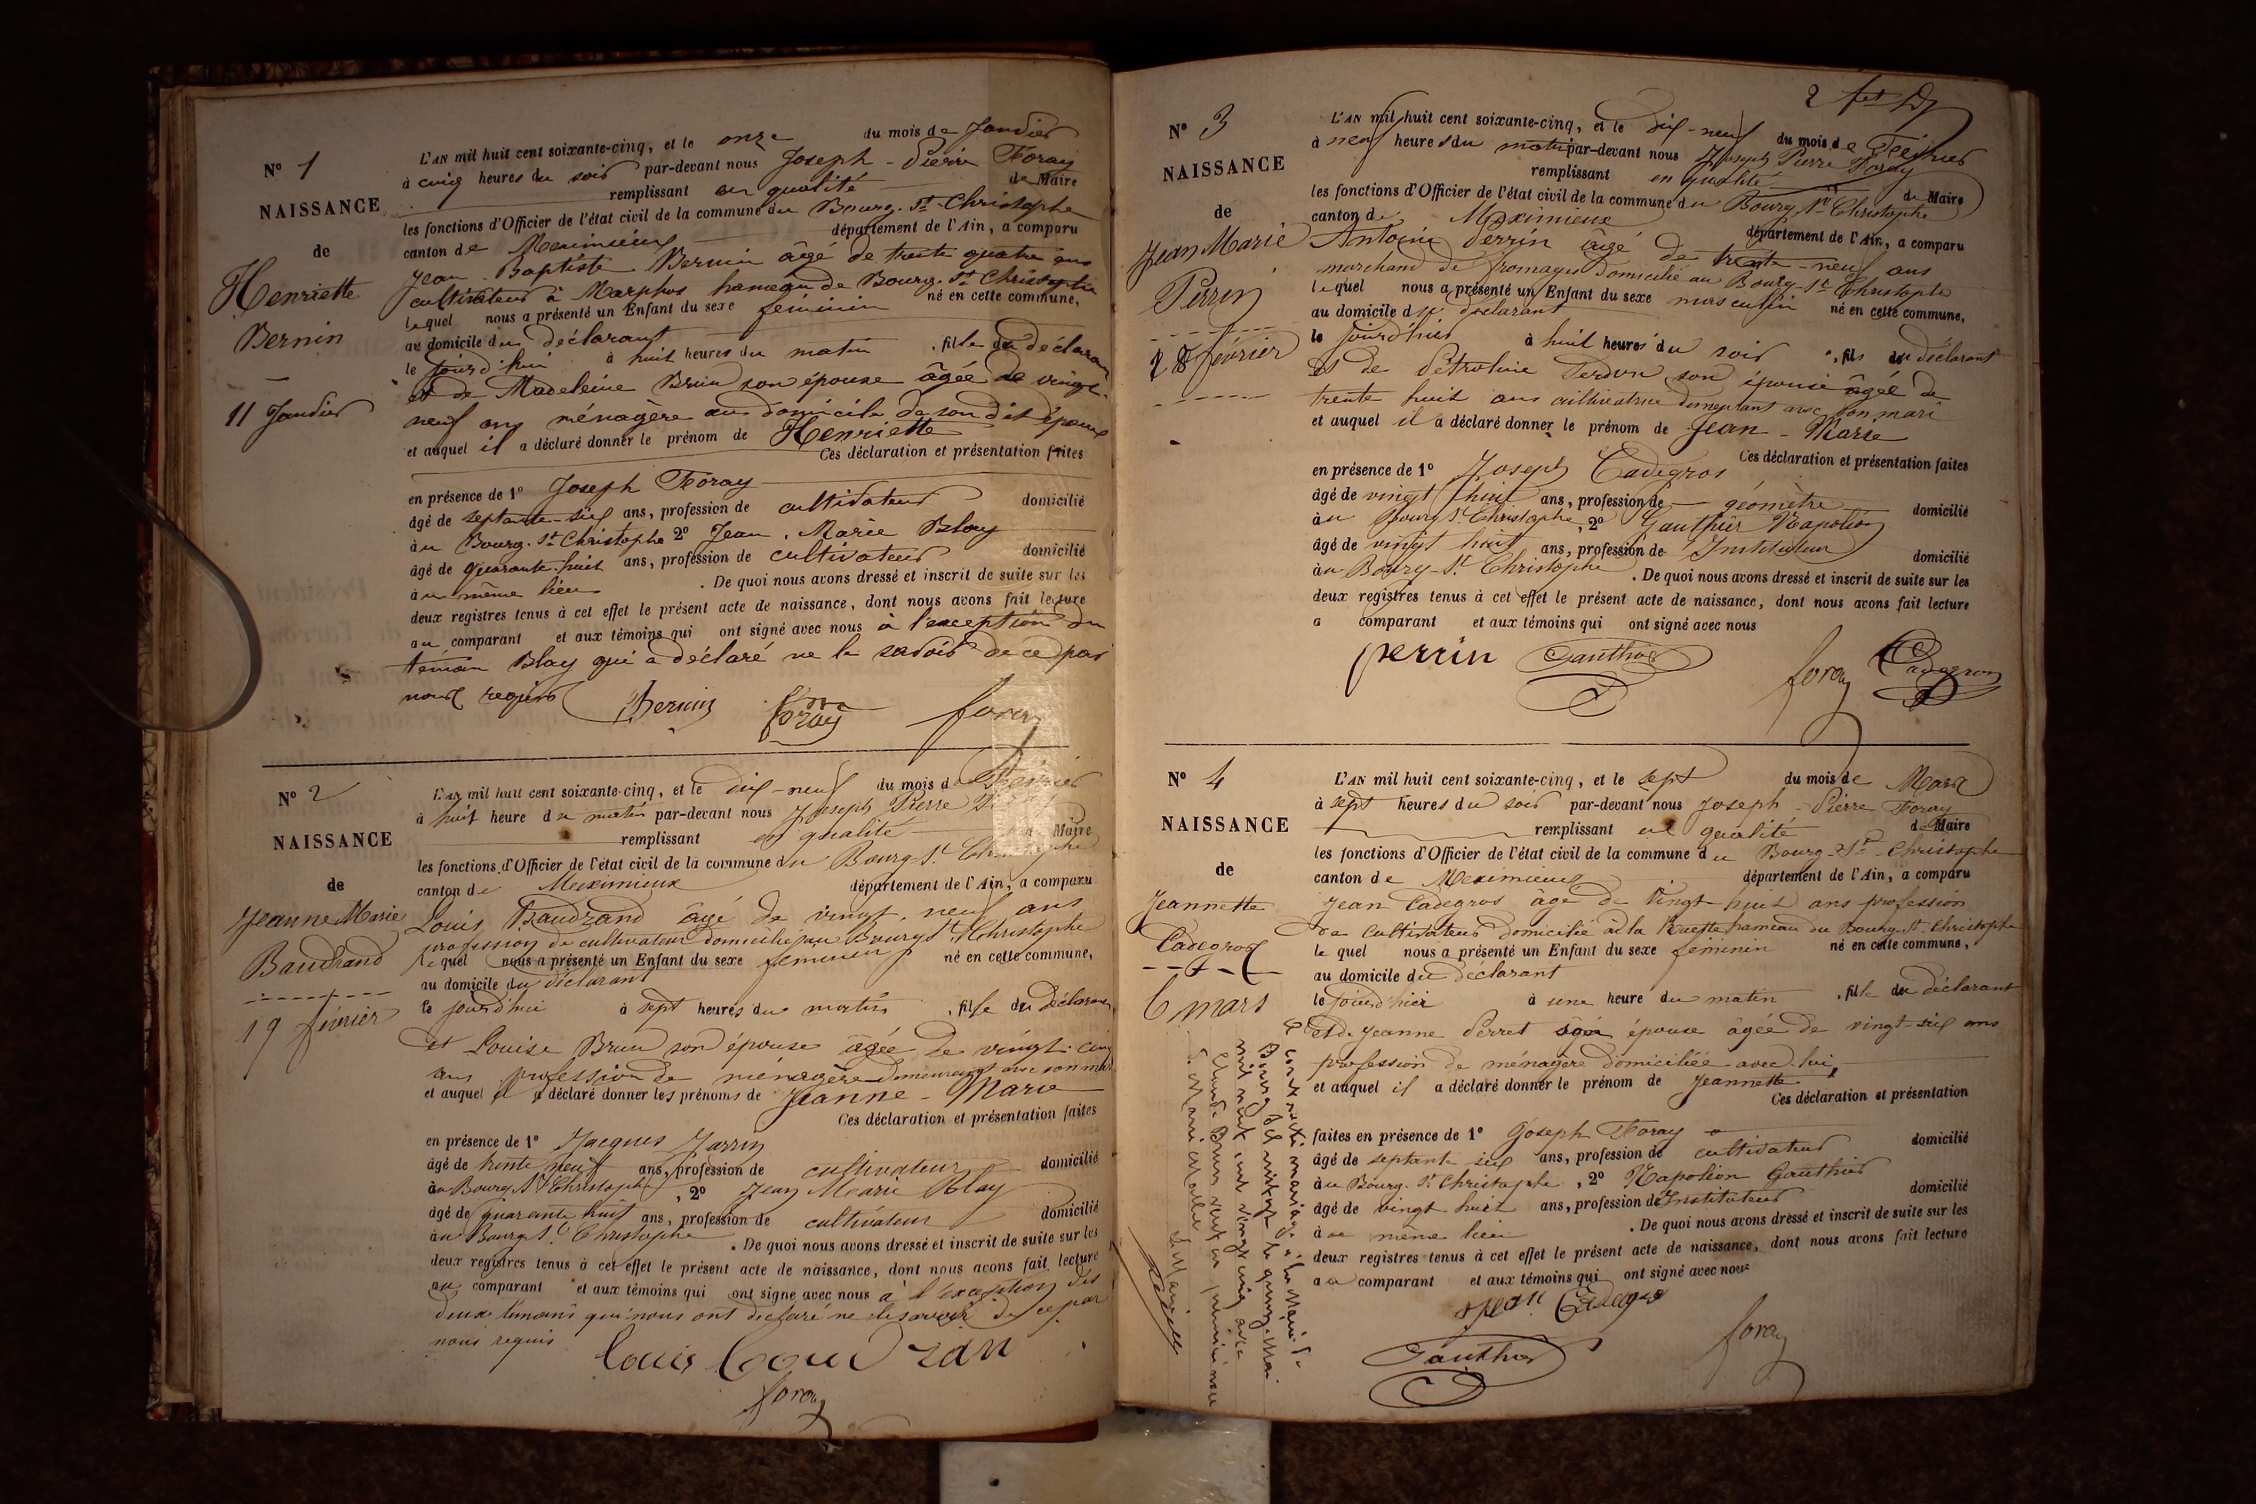 N° 1
NAISSANCE
de
Henriette
Bernin
11 Janvier
L'AN mil huit cent soixante-cinq, et le onze du mois de Janvier
à cinq heures du soir par-devant nous Joseph-Pierre Foray
remplissant en qualité de Maire
les fonctions d'Officier de l'état civil de la commune du Bourg-St-Christophe
canton de Meximieux département de l'Ain, a comparu
Jean-Baptiste Bernin âgé de trente quatre ans
cultivateur à Marphos hameau de Bourg-St-Christophe
lequel nous a présenté un Enfant du sexe féminin né en cette commune,
au domicile du déclarant
le jourd'hui à huit heures du matin, fille du déclarant
et de Madeleine Brun son épouse âgée de vingt-
neuf ans ménagère au domicile de son dit époux
et auquel il a déclaré donner le prénom de Henriette
Ces déclaration et présentation faites
en présence de 1° Joseph Foray
âgé de septante-six ans, profession de cultivateur domicilié
au Bourg-St-Christophe 2° Jean-Marie Blay
âgé de quarante-huit ans, profession de cultivateur domicilié
au même lieu. De quoi nous avons dressé et inscrit de suite sur les
deux registres tenus à cet effet le présent acte de naissance, dont nous avons fait lecture
au comparant et aux témoins qui ont signé avec nous à l'exception du
témoin Blay qui a déclaré ne le savoir de ce par
nous requis
Bernin Foray foray
N° 2
NAISSANCE
de
Jeanne Marie
Baudrand
19 février
L'AN mil huit cent soixante-cinq, et le dix-neuf du mois de Février
à huit heure du matin par-devant nous Joseph Pierre
remplissant en qualité de Maire
les fonctions d'Officier de l'état civil de la commune du Bourg-St-Christophe
canton de Meximieux département de l'Ain, a comparu
Louis Baudrand âgé de vingt-neuf ans
profession de cultivateur domicilié au Bourg St Christophe
lequel nous a présenté un Enfant du sexe féminin né en cette commune,
au domicile du déclarant
le jourd'hui à sept heures du matin, fille du déclarant
et Louise Brun son épouse âgée de vingt-cinq
ans profession de ménagère demeurant avec son mari
et auquel il a déclaré donner les prénoms de Jeanne-Marie
Ces déclaration et présentation faites
en présence de 1° Jacques Jarrin
âgé de trente neuf ans, profession de cultivateur domicilié
au Bourg St Christophe, 2° Jean Marie Blay
âgé de quarante huit ans, profession de cultivateur domicilié
au Bourg St Christophe. De quoi nous avons dressé et inscrit de suite sur les
deux registres tenus à cet effet le présent acte de naissance, dont nous avons fait lecture
au comparant et aux témoins qui ont signé avec nous à l'exception des
deux témoins qui nous ont déclaré ne le savoir de ce par
nous requis
Louis Baudran
foray
2
N° 3
NAISSANCE
de
Jean Marie
Perrin
18 février
L'AN mil huit cent soixante-cinq, et le dix-neuf du mois de Février
à neuf heures du matin par-devant nous Joseph Pierre Foray
remplissant en qualité de Maire
les fonctions d'Officier de l'état civil de la commune du Bourg St Christophe
canton de Meximieux département de l'Ain, a comparu
Antoine Perrin âgé de trente-neuf ans
marchand de fromages domicilié au Bourg-St Christophe
lequel nous a présenté un Enfant du sexe masculin né en cette commune,
au domicile du déclarant
le jourd'hier à huit heures du soir, fils du déclarant
et de Pétroline Perdon son épouse âgée de
trente huit ans cultivatrice demeurant avec son mari
et auquel il a déclaré donner le prénom de Jean-Marie
Ces déclaration et présentation faites
en présence de 1° Joseph Cadegros
âgé de vingt huit ans, profession de géomètre domicilié
au Bourg St Christophe, 2° Gauthier Napoléon
âgé de vingt huit ans, profession de Instituteur domicilié
au Bourg-St Christophe. De quoi nous avons dressé et inscrit de suite sur les
deux registres tenus à cet effet le présent acte de naissance, dont nous avons fait lecture
a comparant et aux témoins qui ont signé avec nous
perrin Gauthier foray Cadegros
N° 4
NAISSANCE
de
Jeannette
Cadegros
6 mars
L'AN mil huit cent soixante-cinq, et le sept du mois de Mars
à sept heures du soir par-devant nous Joseph-Pierre Foray
remplissant en qualité de Maire
les fonctions d'Officier de l'état civil de la commune du Bourg-St-Christophe
canton de Meximieux département de l'Ain, a comparu
Jean Cadegros âgé de vingt-huit ans profession
de cultivateur domicilié à la Ruette hameau du Bourg-St-Christophe
lequel nous a présenté un Enfant du sexe féminin né en cette commune,
au domicile du déclarant
le jourd'hier à une heure du matin, fille du déclarant
et de Jeanne Perret son épouse âgée de vingt-six ans
profession de ménagère domiciliée avec lui,
et auquel il a déclaré donner le prénom de Jeannette
Ces déclaration et présentation
faites en présence de 1° Joseph Foray
âgé de septante six ans, profession de cultivateur domicilié
au Bourg-St Christophe, 2° Napoléon Gauthier
âgé de vingt huit ans, profession de Instituteur domicilié
au même lieu. De quoi nous avons dressé et inscrit de suite sur les
deux registres tenus à cet effet le présent acte de naissance, dont nous avons fait lecture
au comparant et aux témoins qui ont signé avec nous
Jean Cadegros
Gauthier foray
a contracté mariage à la Mairie de
Bourg le quinze Mai
mil neuf cent vingt cinq avec
Claude Brun
Le Maire